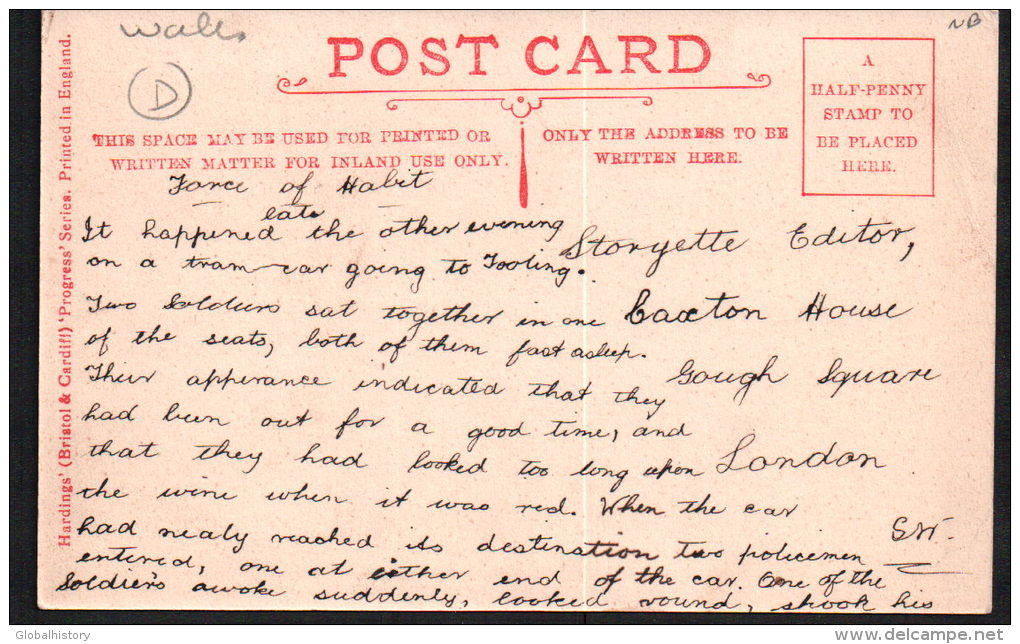 Wales
NB
D
POST CARD
THIS SPACE MAY BE USED FOR PRINTED OR
WRITTEN MATTER FOR INLAND USE ONLY.
ONLY THE ADDRESS TO BE
WRITTEN HERE.
A
HALF-PENNY
STAMP TO
BE PLACED
HERE.
Hardings' (Bristol & Cardiff) 'Progress' Series. Printed in England.
Force of Habit
It happened late the other evening
on a tram-car going to Tooting.
Two Soldiers sat together in one
of the seats, both of them fast asleep.
Their apperance indicated that they
had been out for a good time, and
that they had looked too long upon
the wine when it was red. When the car
had nealy reached its destination two policemen
entered, one at either end of the car. One of the
Soldiers awoke suddenly, looked round, shook his
Storyette Editor,
Caxton House
Gough Square
London
SW.
Globalhistory
delcampe.net